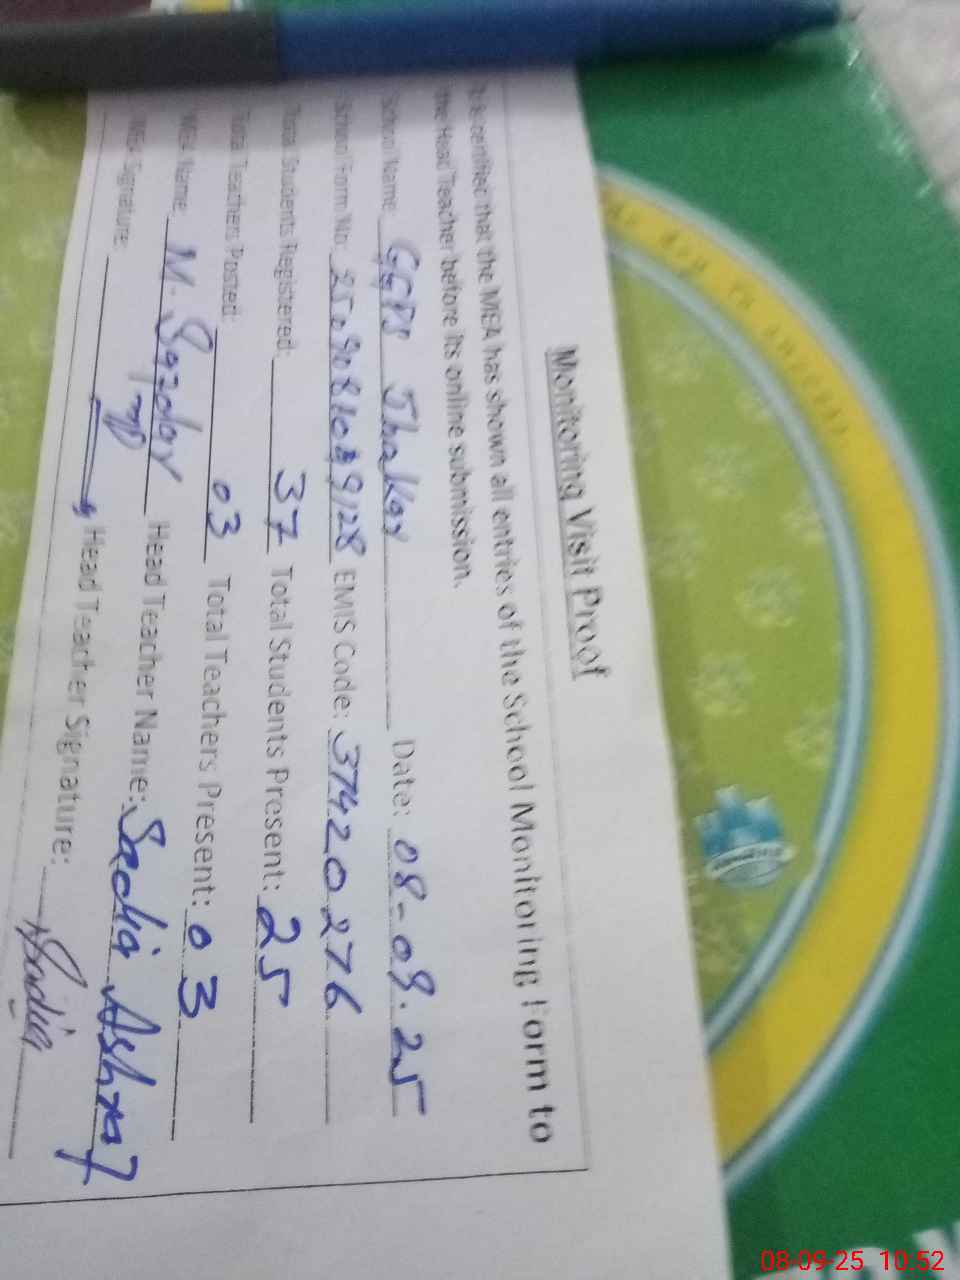 Monitoring Visit Proof
that the MEA has shown all entries of the School Monitoring Form to
the Head Teacher before its online submission.
School Name GGPS Date: 08-09-25
School Form No: EMIS Code: 37420276
Total Students Registered: 37 Total Students Present: 25
Total Teachers Posted: 03 Total Teachers Present: 03
MEA Name M. Head Teacher Name: Sadia Ashraf
MEA Signature: Head Teacher Signature: Sadia
08-09-25 10:52